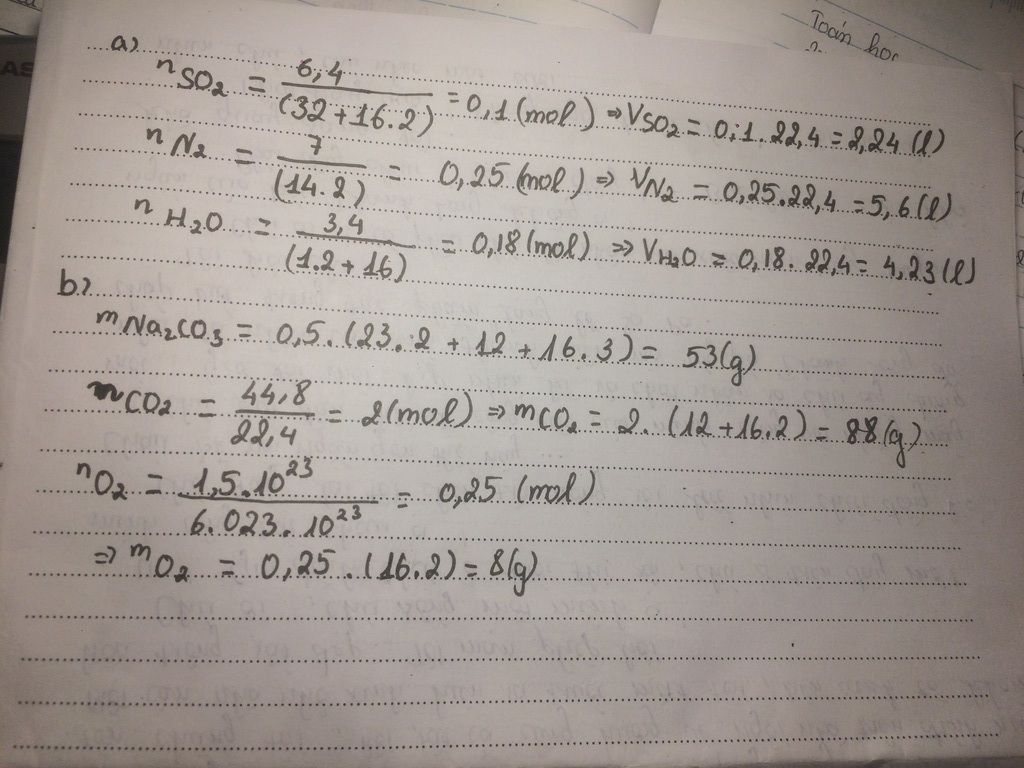 Toán học
a)
nSO2 = 6,4 / (32 + 16.2) = 0,1 (mol) => VSO2 = 0,1.22,4 = 2,24 (l)
nN2 = 7 / (14.2) = 0,25 (mol) => VN2 = 0,25.22,4 = 5,6 (l)
nH2O = 3,4 / (1.2 + 16) = 0,18 (mol) => VH2O = 0,18.22,4 = 4,23 (l)
b)
mNa2CO3 = 0,5.(23.2 + 12 + 16.3) = 53(g)
nCO2 = 44,8 / 22,4 = 2 (mol) => mCO2 = 2.(12 + 16.2) = 88(g)
nO2 = 1,5.10^23 / 6.023.10^23 = 0,25 (mol)
=> mO2 = 0,25.(16.2) = 8(g)